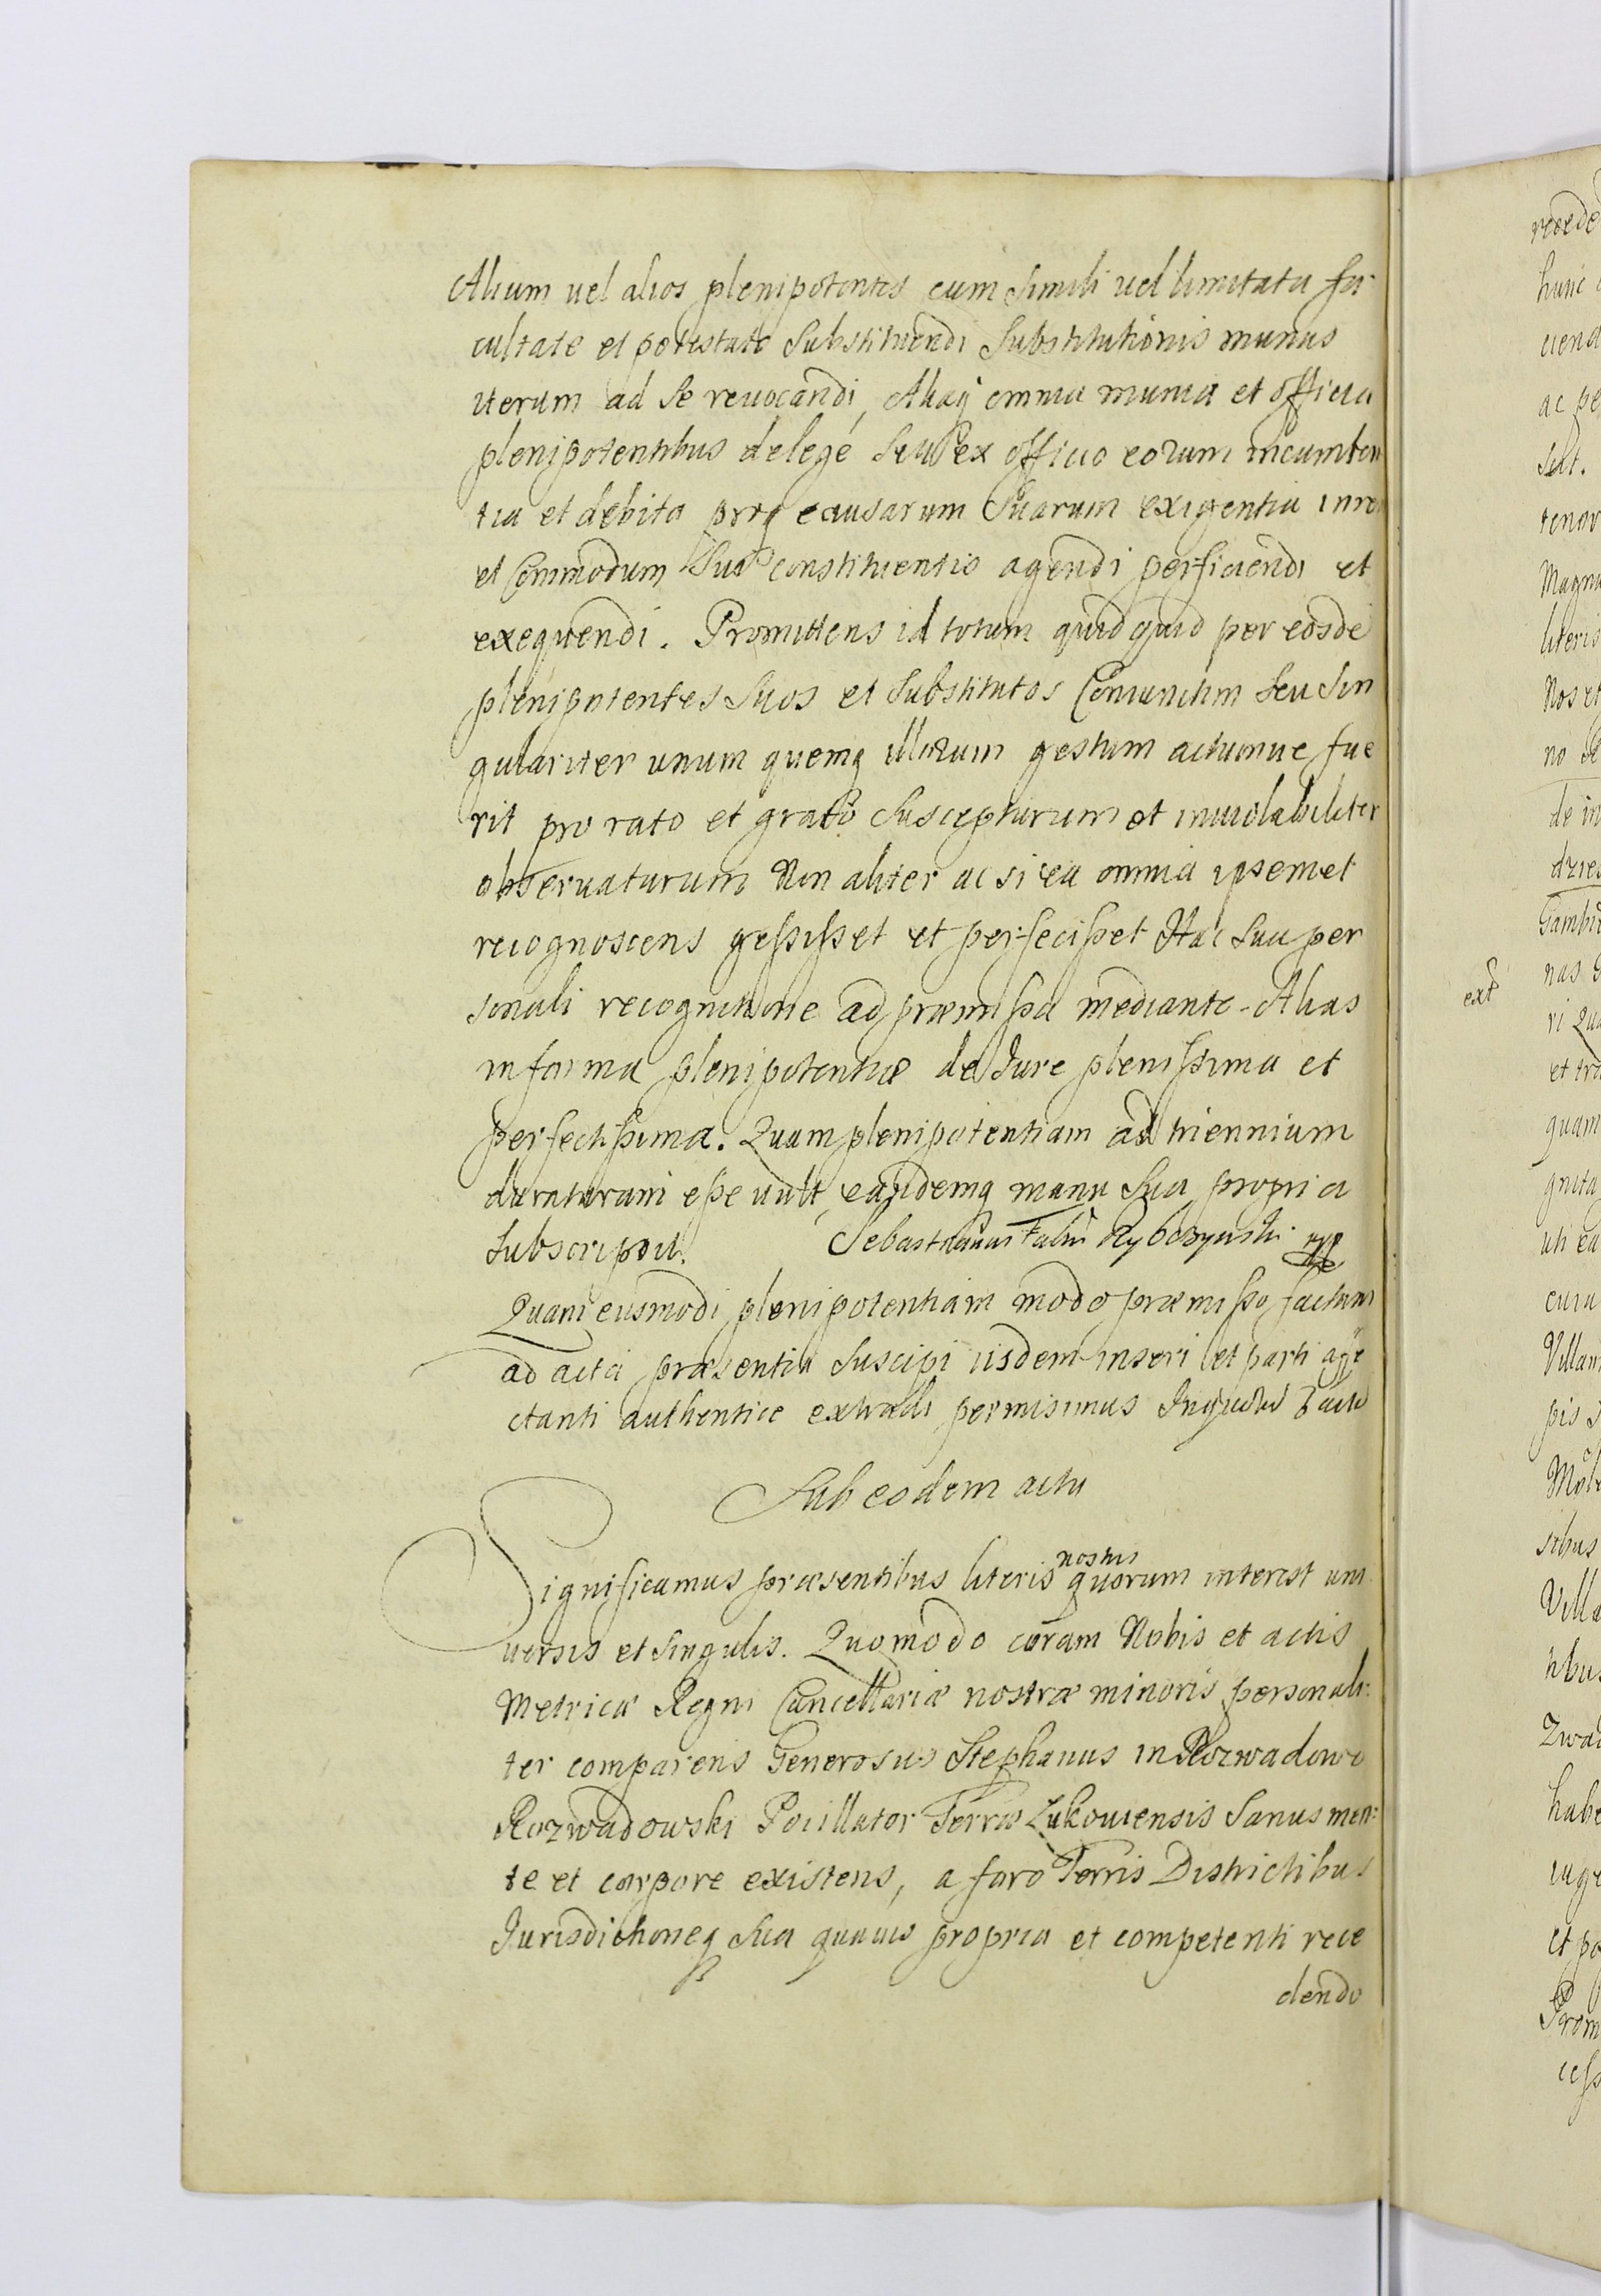 Alium uel alios plenipotentes cum simili uel limitata fa
cultate et potestate substituendi substitutionis munus
iterum ad se reuocandi, Aliaq omnia munia et officia
plenipotentibus de lege seu ex officio eorum incumben
tia et debita proq causarum suarum exigentia in rem
et Commodum sui constituentis agendi perficiendi et
exequendi. Promittens id totum quidquid per eosde
plenipotentes suos et substitutos Coniunctim seu sin
gulariter unum quemq illorum gestum actumue fue
rit pro rato et grato suscepturum et inuiolabiliter
obseruaturum Non aliter ac si ea omnia ipsemet
recognoscens gessisset et perfecisset Hac sua per
sonali recognitione ad præmissa mediante. Alias
in forma plenipotentiæ de Jure plenissima et
perfectissima. Quam plenipotentiam ad triennium
duraturam esse uult, eandemq manu sua propria
subscripsit. Sebastianus Rybczynski mp
Quam eiusmodi plenipotentiam modo præmisso factam
ad acta præsentia suscipi iisdem inseri et parti affe
ctanti authentice extradi permisimus
Sub eodem actu
Significamus præsentibus literis nostris quorum interest uni
uersis et singulis. Quomodo coram Nobis et actis
Metricæ Regni Cancellariæ nostræ minoris personali:
ter comparens Generosus Stephanus in Rozwadowo
Rozwadowski Pocillator Terræ Lukouiensis Sanus men:
te et corpore existens, a foro Terris Districtibus
Jurisdictioneq sua quauis propria et competenti rece
dendo
ext